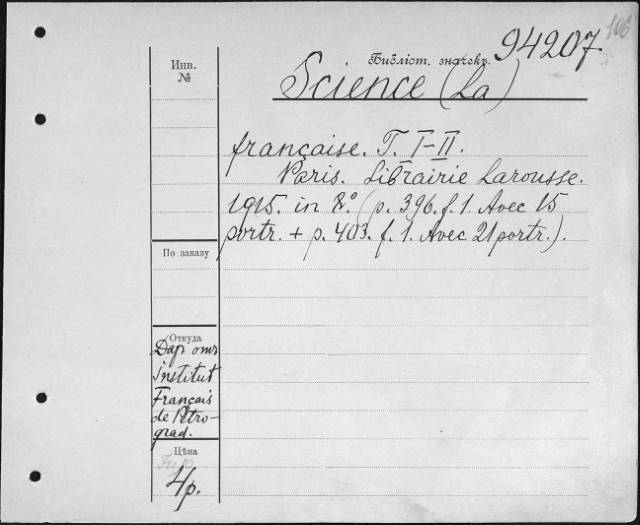 106
Библіот. значекъ 94207.
Инв.
№
Science (La)
française. T. I-II.
Paris. Librairie Larousse.
1915. in 8.° (p. 396. f. 1. Avec 15
portr. + p. 403. f. 1. Avec 21 portr.).
По заказу
Откуда
Дар от
institut
Français
de Pétro-
grad.
Цѣна
4р.